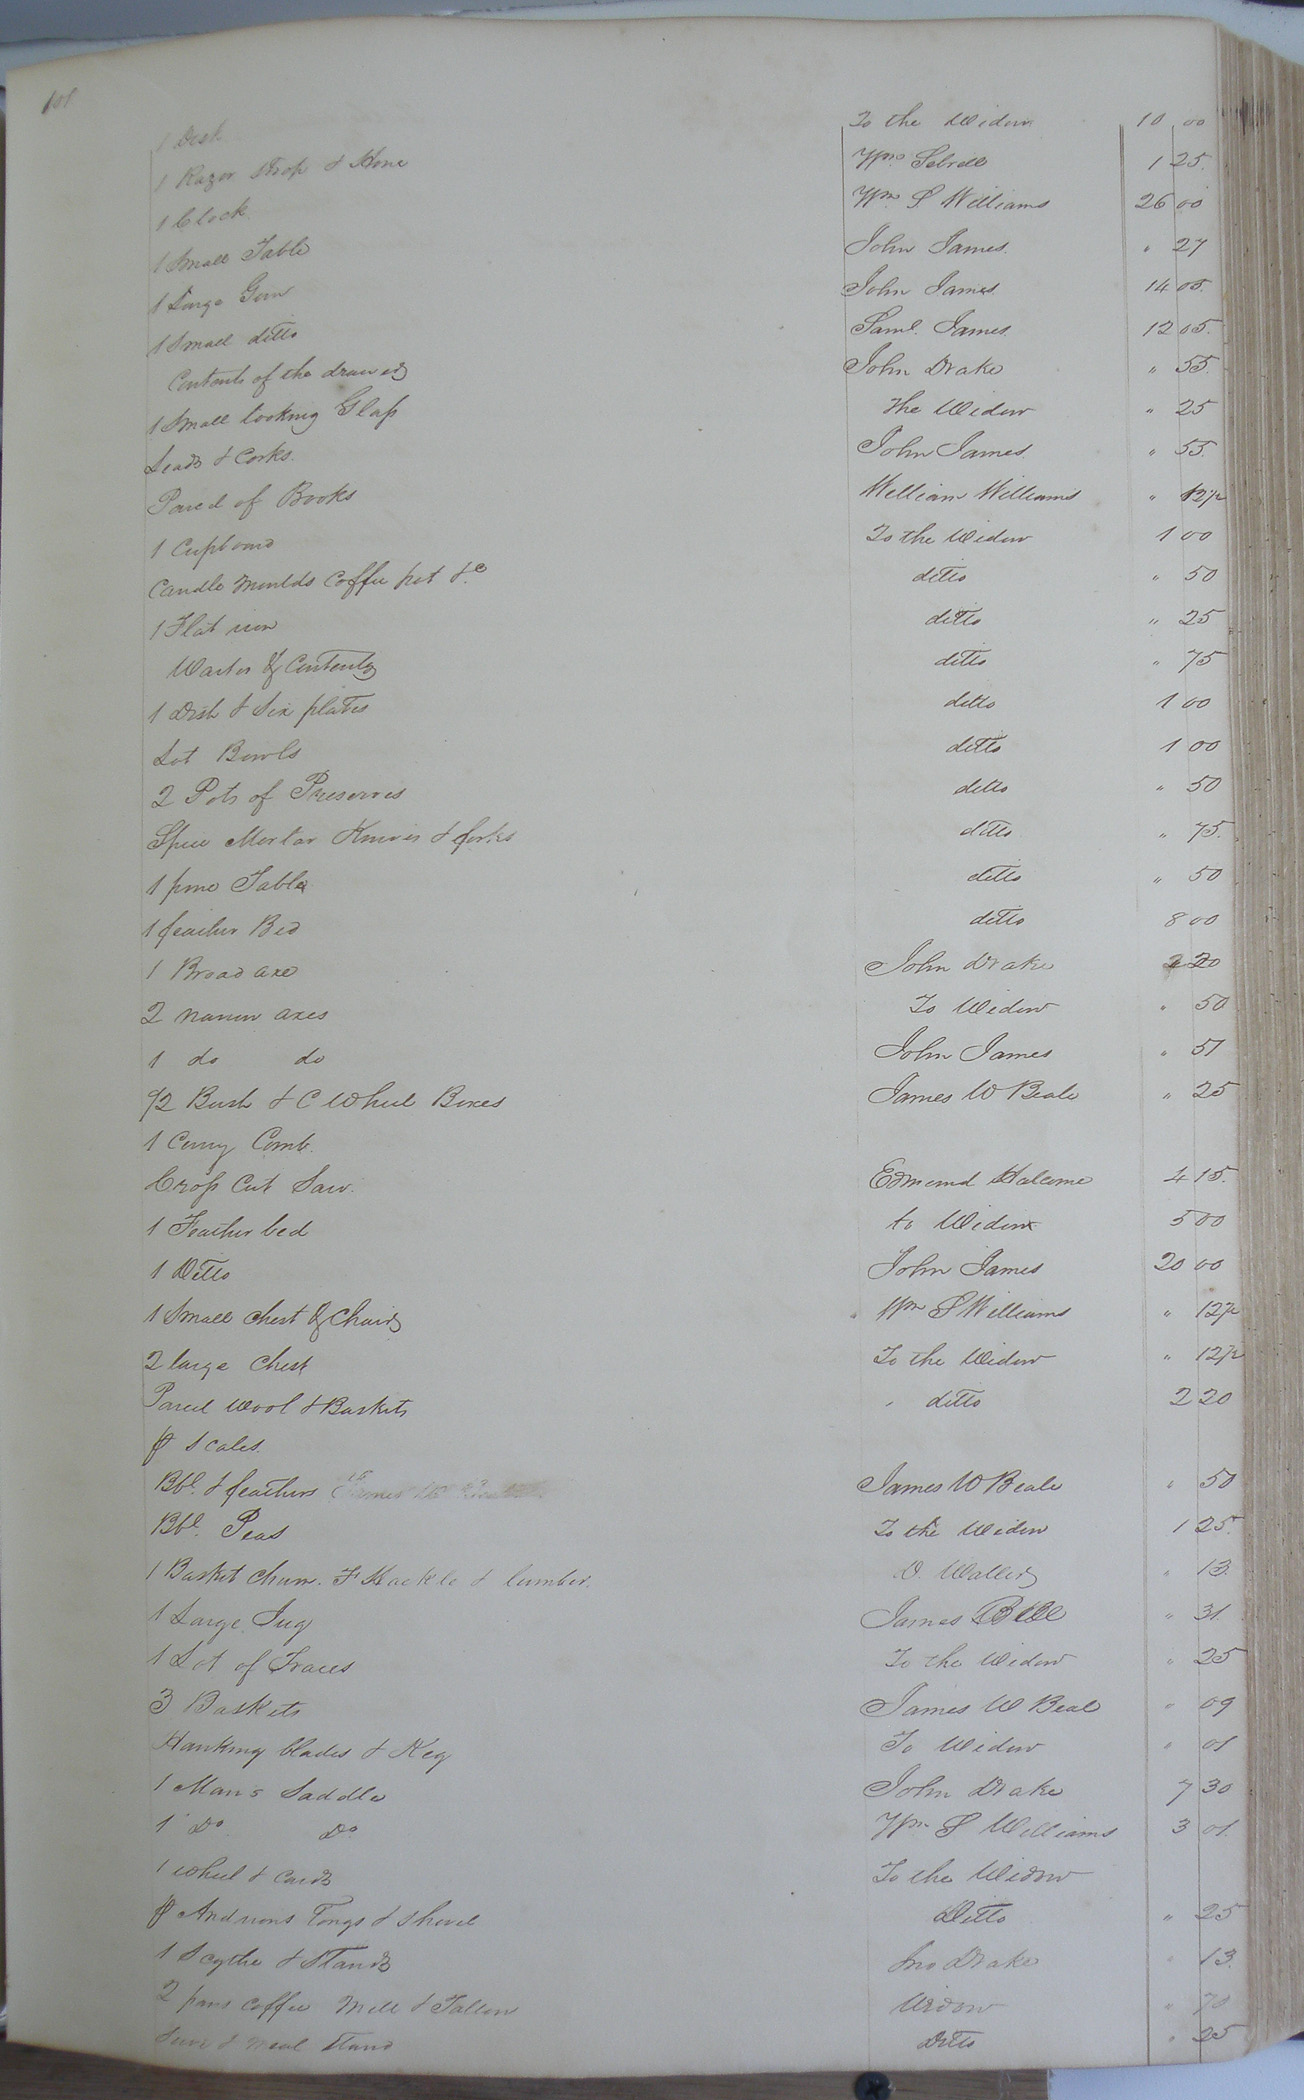 101
1 Desk To the Widow 10 00
1 Razor Strop & Hone Wm 1 25
1 Clock Wm S Williams 26 00
1 Small Table John James " 27
1 Large Gun John James 14 05
1 Small ditto Saml. James 12 05
Contents of the drawers John Drake " 55
1 Small looking Glass The Widow " 25
Leads & Corks John James " 55
Parcel of Books William Williams " 12½
1 Cupboard To the Widow 1 00
Candle Moulds Coffee pot &c ditto " 50
1 Flat iron ditto " 25
Waiter & Contents ditto " 75
1 Dish & Six plates ditto 1 00
Lot Bowls ditto 1 00
2 Pots of Preserves ditto " 50
Spice Mortar Knives & forks ditto " 75
1 pine Table ditto " 50
1 feather Bed ditto 8 00
1 Broad axe John Drake 2 20
2 narrow axes To Widow " 50
1 do do John James " 51
1/2 Bush & C Wheel Boxes James W Beale " 25
1 Curry Comb
Cross Cut Saw Edmund Holcome 4 15
1 Feather bed to Widow 5 00
1 Ditto John James 20 00
1 Small Chest & Chairs Wm S Williams " 12½
2 large Chest To the Widow " 12½
Parcel Wool & Baskets ditto 2 20
pr Scales
Bbl. & feathers James W Beale " 50
Bbl. Peas To the Widow 1 25
1 Basket Churn. F Hackle & lumber. D. Wallers " 13
1 Large Jug James Bell " 31
1 Lot of Traces To the Widow " 25
3 Baskets James W Beal " 09
Hanking blades & Keg To Widow " 01
1 Man's Saddle John Drake 7 30
1 Do Do Wm S Williams 3 01
1 Wheel & Cards To the Widow
pr Andirons Tongs & Shovel Ditto " 25
1 Scythe & Stands Jno Drake " 13
2 pans Coffee Mill & Tallow Widow " 70
Sieve & Meal Stand Ditto " 25